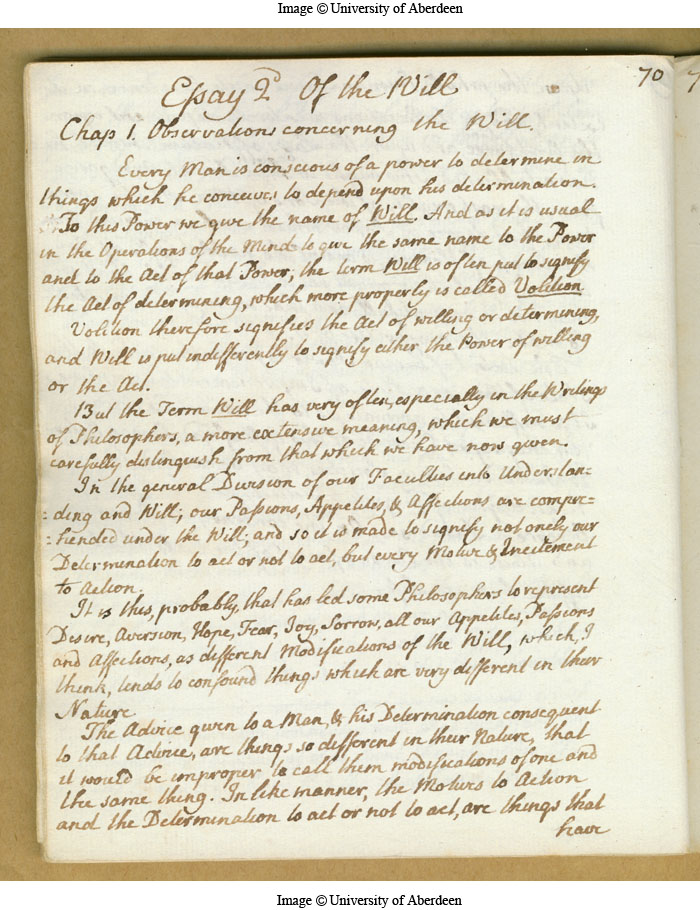 Image © University of Aberdeen
70
Essay 2d Of the Will
Chap 1. Observations concerning the Will.
Every Man is conscious of a power to determine in
things which he conceives to depend upon his determination.
To this Power we give the name of Will. And as it is usual
in the Operations of the Mind to give the same name to the Power
and to the Act of that Power, the term Will is often put to signify
the Act of determining, which more properly is called Volition
Volition therefore signifies the Act of willing or determining,
and Will is put indifferently to signify either the Power of willing
or the Act.
But the Term Will has very often, especially in the Writings
of Philosophers, a more extensive meaning, which we must
carefully distinguish from that which we have now given.
In the general Division of our Faculties into Understan=
=ding and Will; our Passions, Appetites, & Affections are compre=
=hended under the Will; and so it is made to signify not onely our
Determination to act or not to act, but every Motive & Incitement
to Action.
It is this, probably, that has led some Philosophers to represent
Desire, Aversion, Hope, Fear, Joy, Sorrow, all our Appetites, Passions
and Affections, as different Modifications of the Will, which, I
think, tends to confound things which are very different in their
Nature
The Advice given to a Man, & his Determination consequent
to that Advice, are things so different in their Nature, that
it would be improper to call them modifications of one and
the same thing. In like manner, the Motives to Action
and the Determination to act or not to act, are things that
have
Image © University of Aberdeen